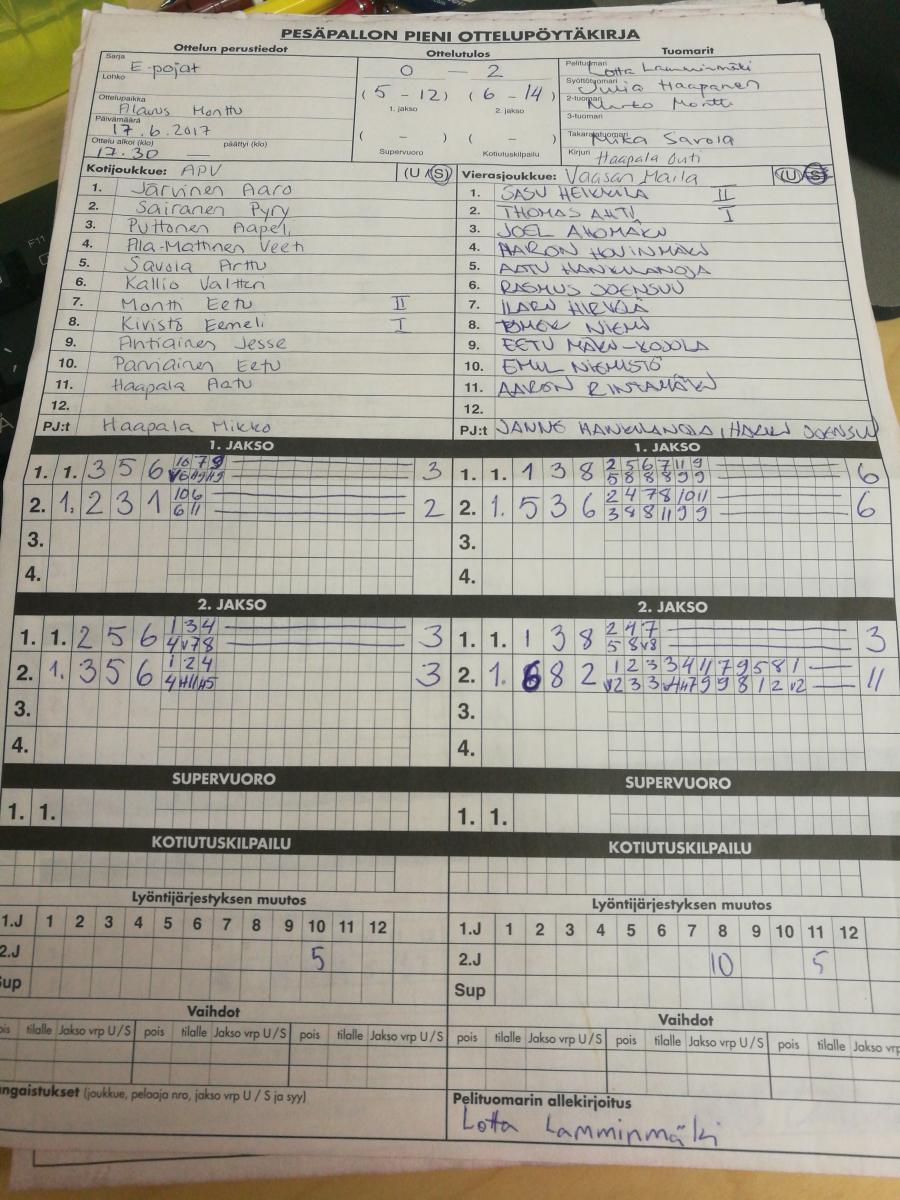 PESÄPALLON PIENI OTTELUPÖYTÄKIRJA
Ottelun perustiedot
Sarja
E-pojat
Lohko
Ottelupaikka
Alavus Monttu
Päivämäärä
17.6.2017
Ottelu alkoi (klo) päättyi (klo)
17.30 —
Ottelutulos
0 — 2
(5 - 12) (6 - 14)
1. jakso 2. jakso
( - ) ( - )
Supervuoro Kotiutuskilpailu
Tuomarit
Pelituomari Lotta Lamminmäki
Syöttötuomari Julia Haapanen
2-tuomari Marko Montti
3-tuomari
Takaraj­atuomari Mika Savola
Kirjuri Haapala Outi
Kotijoukkue: APV (U / S)
1. Järvinen Aaro
2. Sairanen Pyry
3. Puttonen Aapeli
4. Ala-Mattinen Veeti
5. Savola Arttu
6. Kallio Valtteri
7. Montti Eetu II
8. Kivistö Eemeli I
9. Antiainen Jesse
10. Parviainen Eetu
11. Haapala Aatu
12.
PJ:t Haapala Mikko
Vierasjoukkue: Vaasan Maila (U / S)
1. SASU HEIKKILÄ II
2. THOMAS AHTI I
3. JOEL AHOMÄKI
4. AARON HOVINMÄKI
5. AATU HANKILANOJA
6. RASMUS JOENSUU
7. ILARI HIRVELÄ
8. NIEMI
9. EETU MÄKI-KOJOLA
10. EMIL NIEMISTÖ
11. AARON RINTAMÄKI
12.
PJ:t JANNE HANKILANOJA, HARRI JOENSUU
1. JAKSO
1. 1. 3 5 6 10 7 9 3
2. 1. 2 3 1 10 6 2
6 11
3.
4.
1. JAKSO
1. 1. 1 3 8 2 5 6 7 11 9 6
5 8 8 8 9 9
2. 1. 5 3 6 2 4 7 8 10 11 6
3 8 8 11 9 9
3.
4.
2. JAKSO
1. 1. 2 5 6 1 3 4 3
4 v7 8
2. 1. 3 5 6 1 2 4 3
3.
4.
2. JAKSO
1. 1. 1 3 8 2 4 7 3
5 8 v8
2. 1. 6 8 2 1 2 3 3 4 11 7 9 5 8 1 11
3.
4.
SUPERVUORO
1. 1.
SUPERVUORO
1. 1.
KOTIUTUSKILPAILU
KOTIUTUSKILPAILU
Lyöntijärjestyksen muutos
1.J 1 2 3 4 5 6 7 8 9 10 11 12
2.J 5
Sup
Lyöntijärjestyksen muutos
1.J 1 2 3 4 5 6 7 8 9 10 11 12
2.J 10 5
Sup
Vaihdot
pois tilalle Jakso vrp U / S pois tilalle Jakso vrp U / S pois tilalle Jakso vrp U / S
Vaihdot
pois tilalle Jakso vrp U / S pois tilalle Jakso vrp U / S pois tilalle Jakso vrp
ngaistukset (joukkue, pelaaja nro, jakso vrp U / S ja syy)
Pelituomarin allekirjoitus
Lotta Lamminmäki